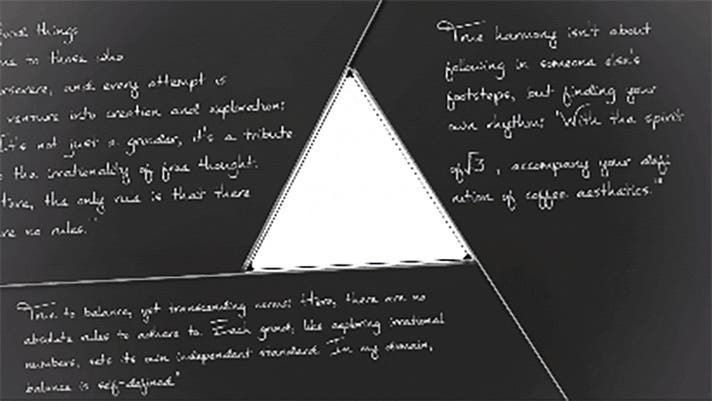 Good things
me to those who
persevere, and every attempt is
venture into creation and exploration:
"It's not just a grinder, it's a tribute
to the irrationality of free thought.
Here, the only rule is that there
are no rules."
True harmony isn't about
following in someone else's
footsteps, but finding your
own rhythm: "With the spirit
of √3 , accompany your defi-
nition of coffee aesthetics."
True to balance, yet transcending across: Here, there are no
absolute rules to adhere to. Each grind, like exploring irrational
numbers, sets its own independent standard. In my domain,
balance is self-defined"